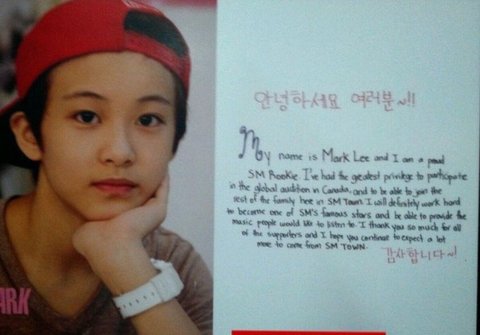 안녕하세요 여러분~!!
My name is Mark Lee and I am a proud
SM Rookie. I've had the greatest privilege to participate
in the global audition in Canada, and to be able to join the
rest of the family here in SM Town. I will definitely work hard
to become one of SM's famous stars and be able to provide the
music people would like to listen to. I thank you so much for all
of the supporters and I hope you continue to expect a lot
more to come from SM TOWN.
감사합니다~!
ARK